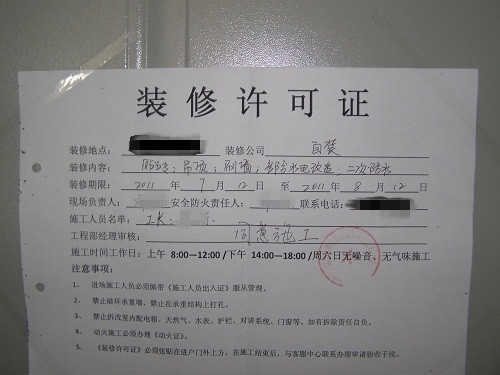 装修许可证
装修地点: 装修公司 自装
装修内容: 吊顶; 刷墙; 水电改造; 二次防水
装修期限: 2011 年 7 月 12 日 至 2011 年 8 月 12 日
现场负责人: 安全防火责任人: 联系电话:
施工人员名单: 工长:
工程部经理审核: 同意施工
施工时间工作日: 上午 8:00—12:00 /下午 14:00—18:00 /周六日无噪音、无气味施工
注意事项:
1. 进场施工人员必须佩带《施工人员出入证》服从管理。
2. 禁止破坏承重墙，禁止在承重结构上打孔。
3. 禁止拆改室内配电箱、天然气、水表、护栏、对讲系统、门窗等，如有拆除责任自负。
4. 动火施工必须办理《动火证》。
5. 《装修许可证》必须张贴在进户门外上方，在施工结束后，与客服中心联系办理审请验收手续。